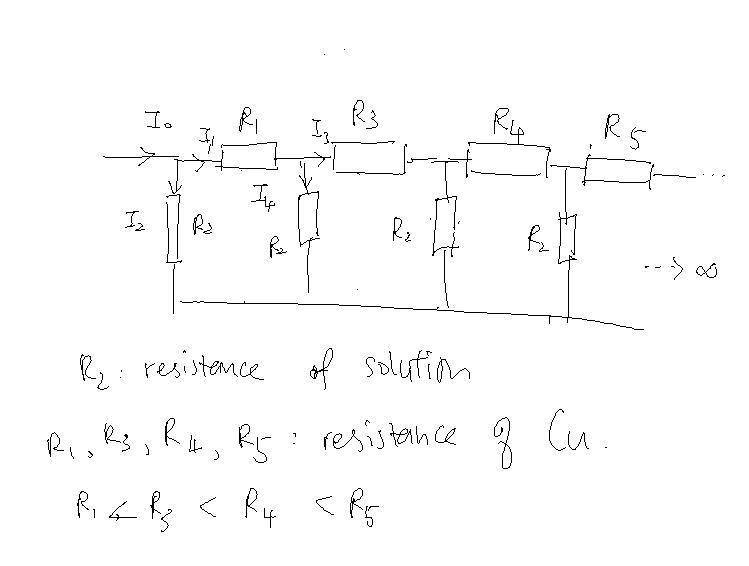 I₀ I₁ R₁ I₃ R₃ R₄ R₅
I₂ R₂ I₄ R₂ R₂ R₂
...
⋯→ ∞
R₂: resistance of solution
R₁, R₃, R₄, R₅: resistance of Cu.
R₁ < R₃ < R₄ < R₅